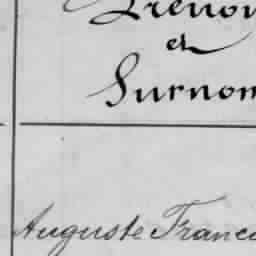 Prénom
et
Surnom
Auguste Franço